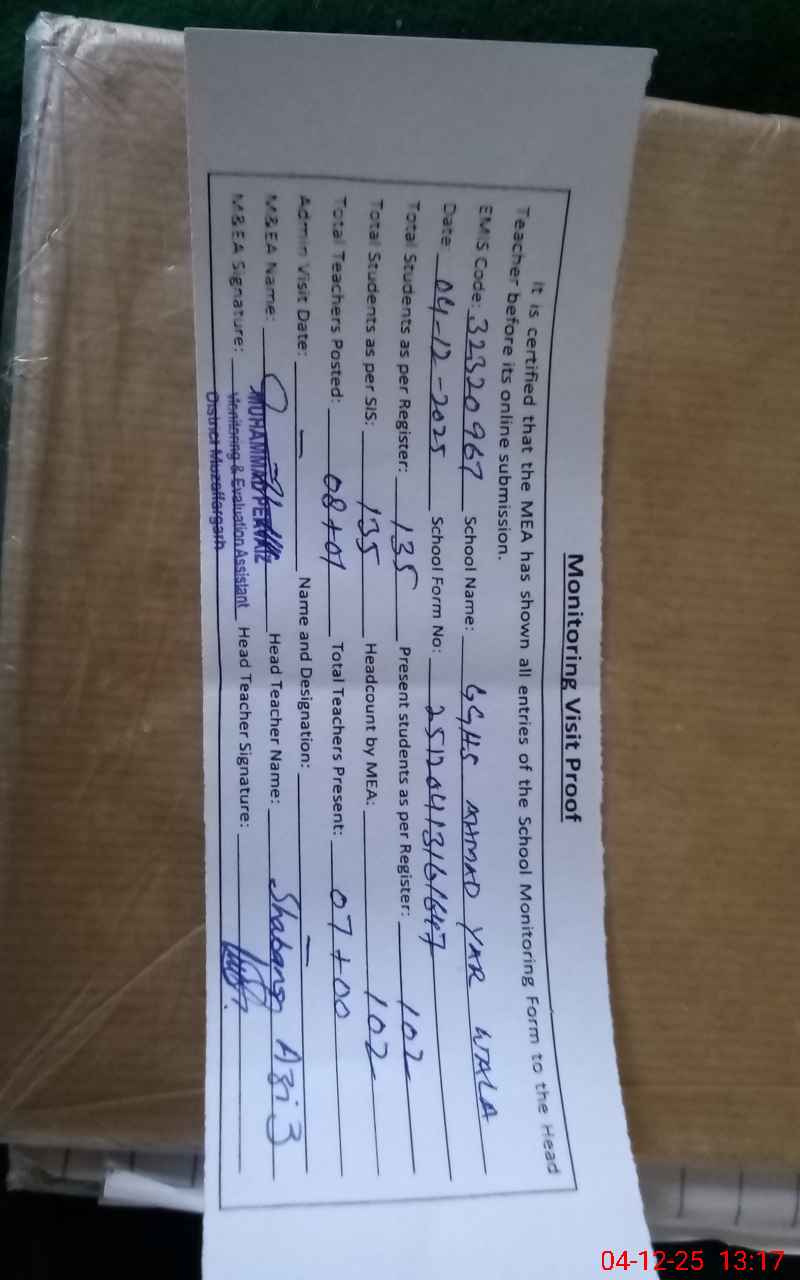 Monitoring Visit Proof
It is certified that the MEA has shown all entries of the School Monitoring Form to the Head
Teacher before its online submission.
EMIS Code: 32320967 School Name: GGHS AHMAD YAR WALA
Date: 04-12-2025 School Form No:
Total Students as per Register: 135 Present students as per Register: 102
Total Students as per SIS: 135 Headcount by MEA: 102
Total Teachers Posted: 08+01 Total Teachers Present: 07+00
Admin Visit Date: — Name and Designation: —
M&EA Name: MUHAMMAD PERVAIZ Head Teacher Name: Shabana Aziz
M&EA Signature: Monitoring & Evaluation Assistant Head Teacher Signature:
District Muzaffargarh
04-12-25 13:17